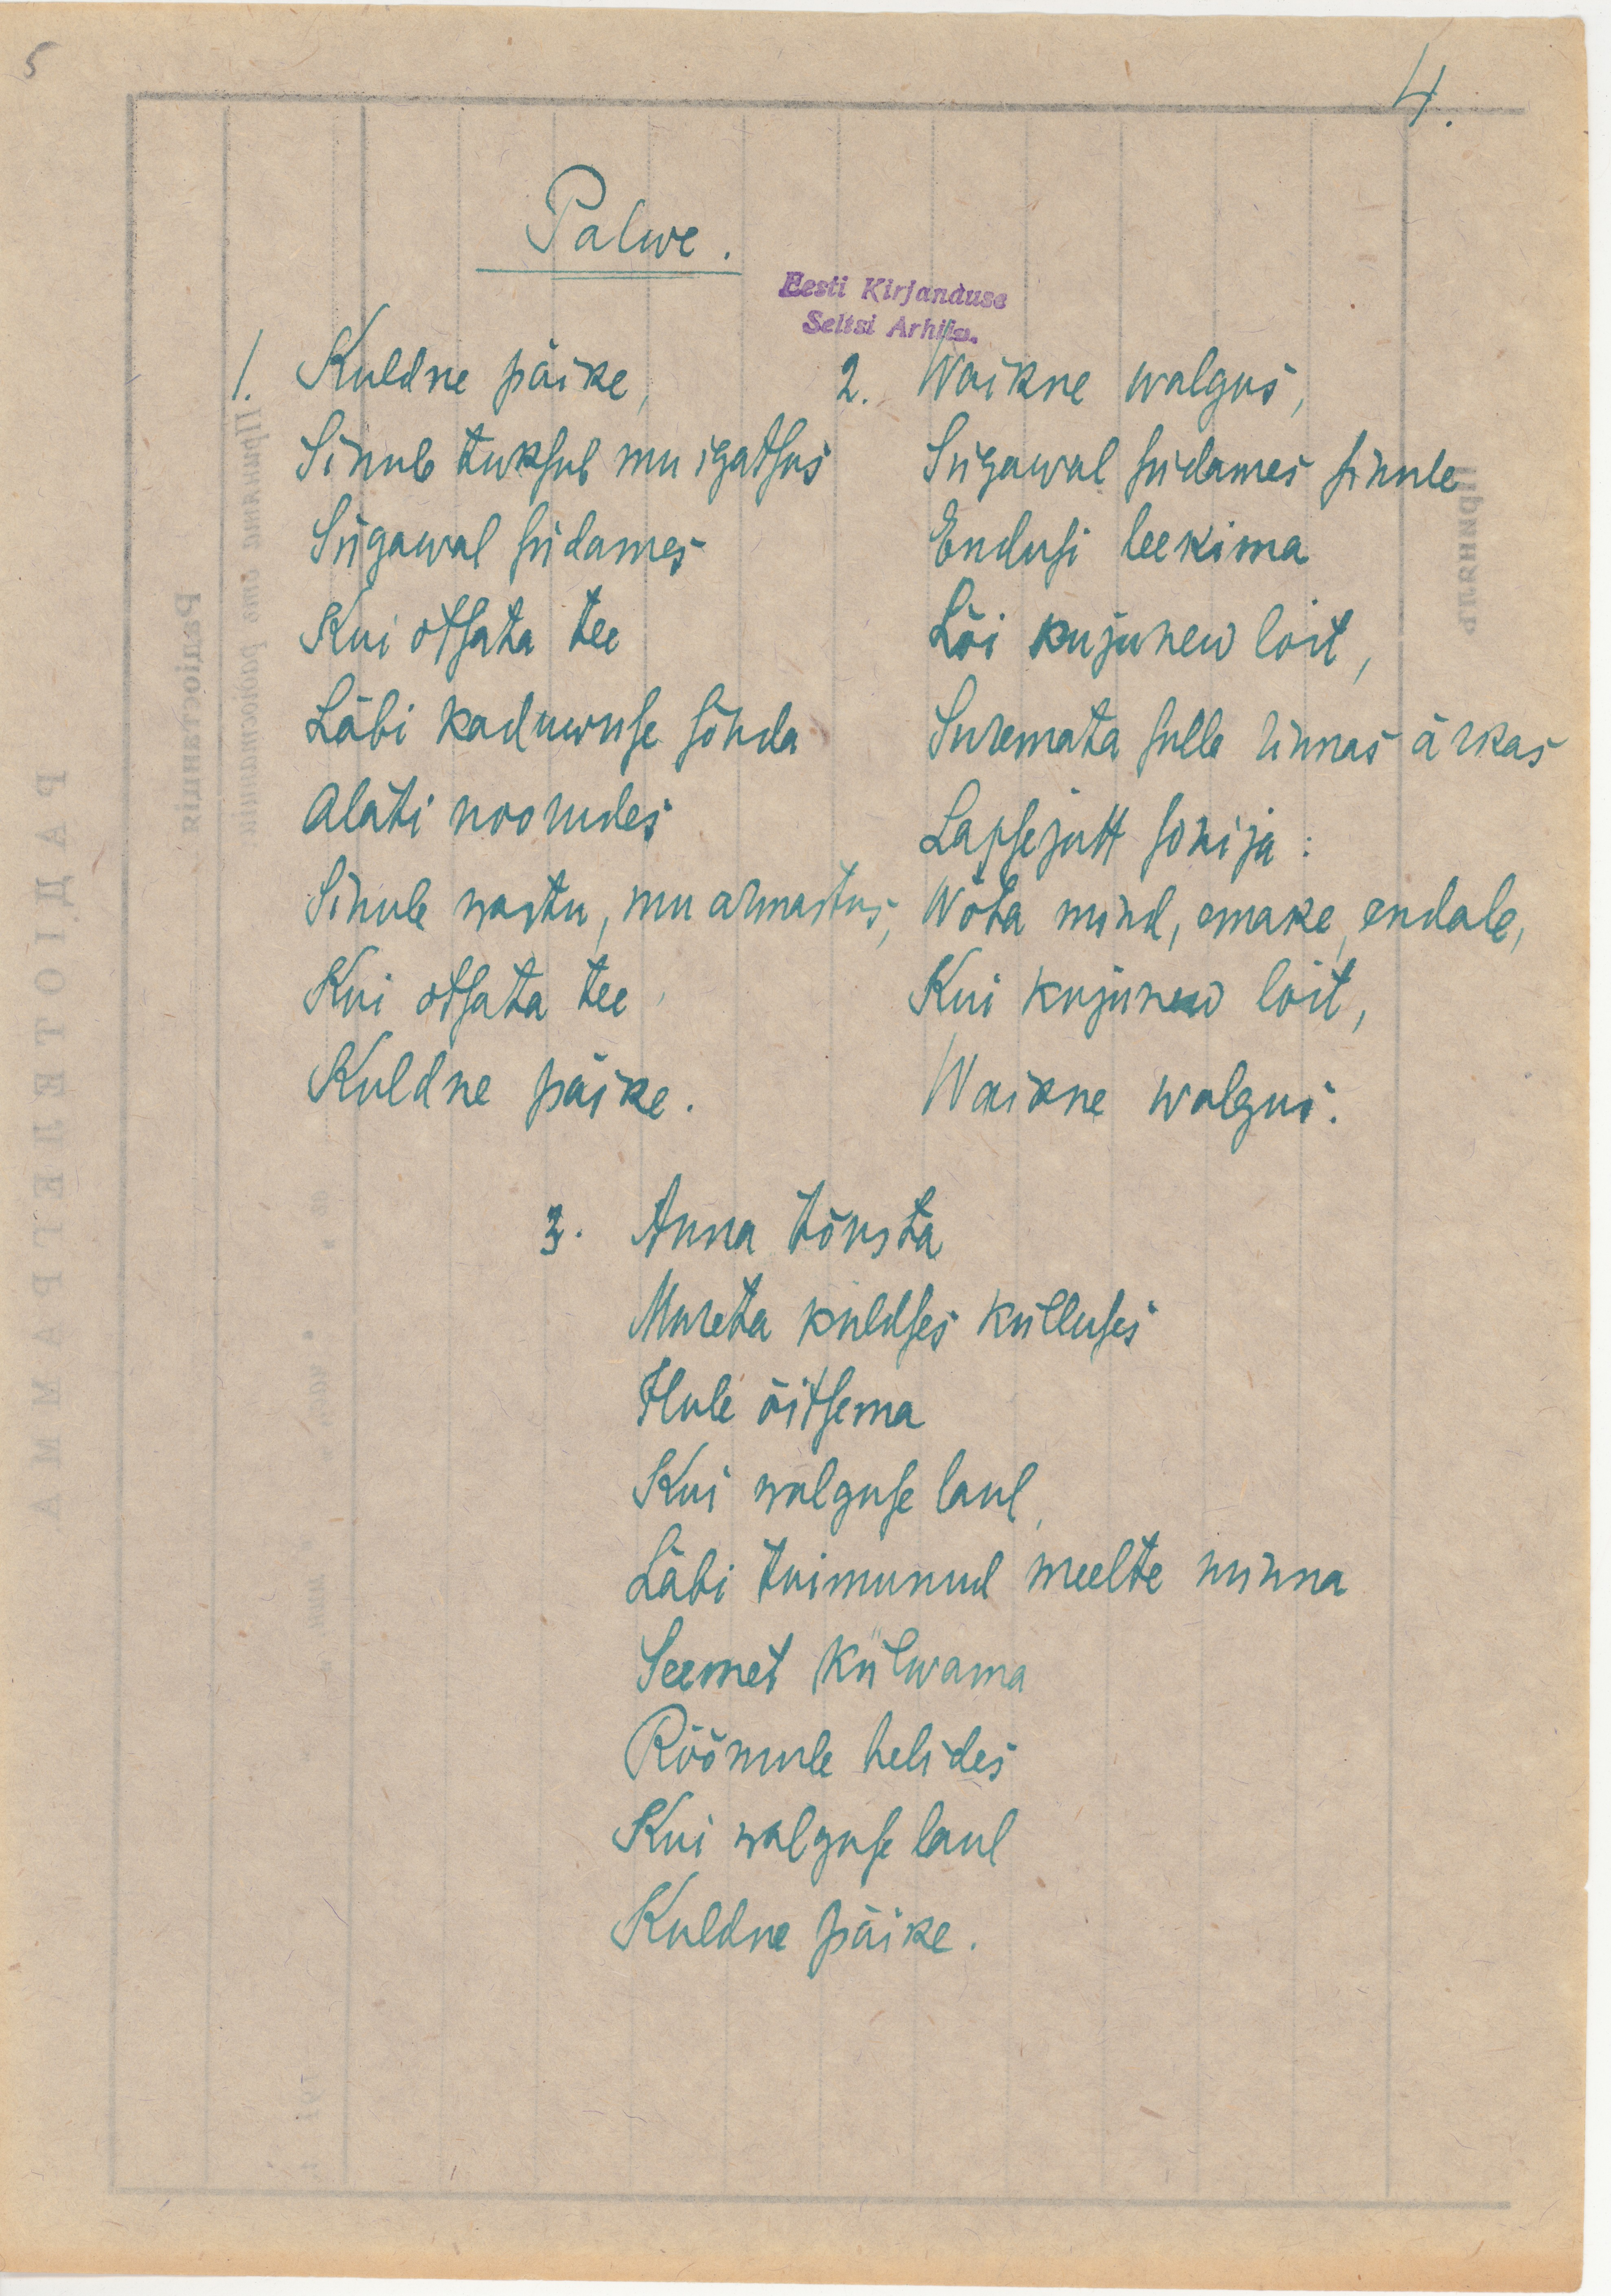 5
4.
Palwe.
Eesti Kirjanduse
Seltsi Arhiiv.
1. Kuldne päike,
Sinule tuksub mu igatsus
Sügawal südames
Kui otsata tee
Läbi kaduwuse sõuda
Aläti nooludes
Sinule wastu, mu armastus,
Kui otsata tee,
Kuldne päike.
2. Waikne walgus,
Sügawal südames sinule
Endusi leekima
Lõi kujunew loit,
Suremata sulle rinnas ärkas
Lapsejutt sonija:
Wõta mind, emake, endale,
Kui kujunew loit,
Waikne walgus.
3. Anna tõusta
Mureta kuldses külluses
Ilule õitsema
Kui walguse laul,
Läbi tuimunud meelte minna
Seemet külwama
Rõõmule helides
Kui walguse laul
Kuldne päike.
РАДІОТЕЛЕГРАММА